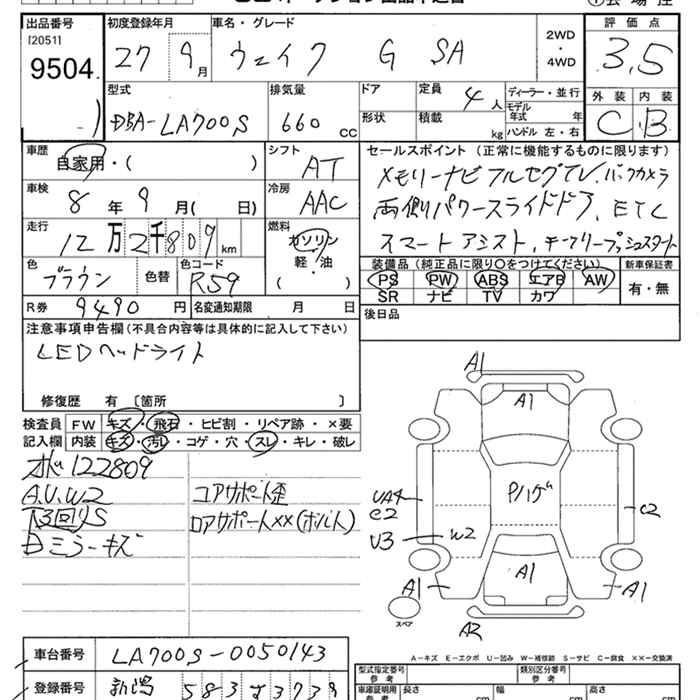 出品番号 初度登録年月 車名・グレード 評価点
[2051]
9504 27 9月 ウェイク G SA 2WD・4WD 3.5
型式 排気量 ドア 定員 4人 ディーラー・並行 外装 内装
DBA-LA700S 660 CC 形状 積載 kg モデル年式 年 ハンドル 左・右 C B
車歴 シフト セールスポイント (正常に機能するものに限ります)
自家用・( ) AT メモリーナビ フルセグTV. バックカメラ
車検 冷房 両側パワースライドドア、ETC
8年 9月( 日) AAC スマートアシスト,
走行 燃料
12万2千809km ガソリン・軽・油 ( )
装備品 (純正品に限り○をつけてください) 新車保証書
色 色替 色コード PS PW ABS エアB AW 有・無
ブラウン R59 SR ナビ TV カワ
R券 9490円 名変通知期限 月 日 後日品
注意事項申告欄 (不具合内容等は具体的に記入して下さい)
LEDヘッドライト
修復歴 有 〔箇所 〕
検査員 FW キズ・飛石・ヒビ割・リペア跡・×要
記入欄 内装 キズ・汚レ・コゲ・穴・スレ・キレ・破レ
122809
A.U.W2 コアサポート歪
下回りS ロアサポート××(ボルト)
ミラーキズ
A1
A1
UA4
C2
Pハゲ
C2
U3
W2
A1
A1
A1
スペア
A2
A-キズ E-エクボ U-凹み W-補修跡 S-サビ C-腐食 ××-交換済
車台番号 LA700S-0050143 型式指定番号 参考 類別区分番号 参考
登録番号 新潟 583 す3739 車庫証明用 参考 長さ cm 幅 cm 高さ cm